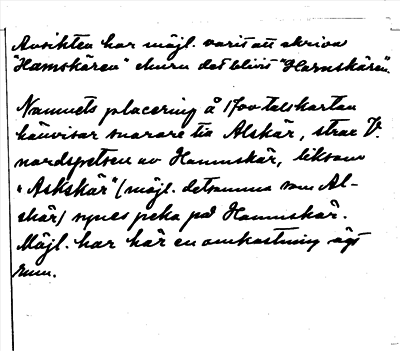 Avsikten har möjl. varit att skriva
"Hamskären" ehuru det blivit "Harnskären".
Namnets placering å 1700 talskartan
hänvisar snarare till Alskär, strax V.
nordspetsen av Hamnskär, liksom
"Askskär" (möjl. detsamma som Al-
skär) synes peka på Hamnskär.
Möjl. har här en omkastning ägt
rum.